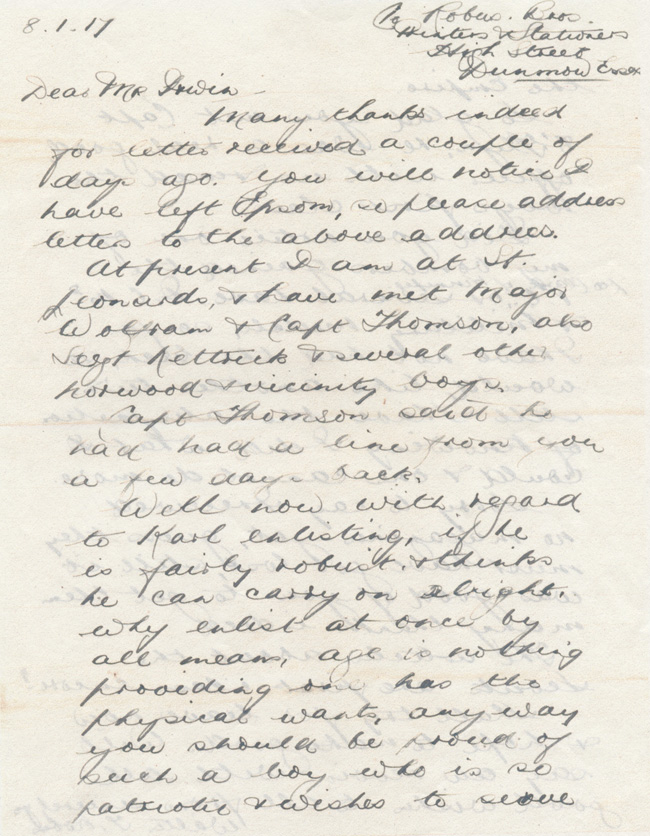 8.1.17
℅ Robus. Bros.
Printers & Stationers
High Street
Dunmow Essex
Dear Mr Irwin
Many thanks indeed
for letter received a couple of
days ago. You will notice I
have left Epsom, so please address
letters to the above address.
At present I am at St.
Leonards, & have met Major
Wolfram & Capt Thomson, also
Sergt Rettrick & several other
Norwood & vicinity boys.
Capt Thomson said he
had had a line from you
a few days back.
Well now with regard
to Karl enlisting, if he
is fairly robust & thinks
he can carry on alright.
why enlist at once by
all means, age is nothing
providing one has the
physical wants, anyway
you should be proud of
such a boy who is so
patriotic & wishes to serve